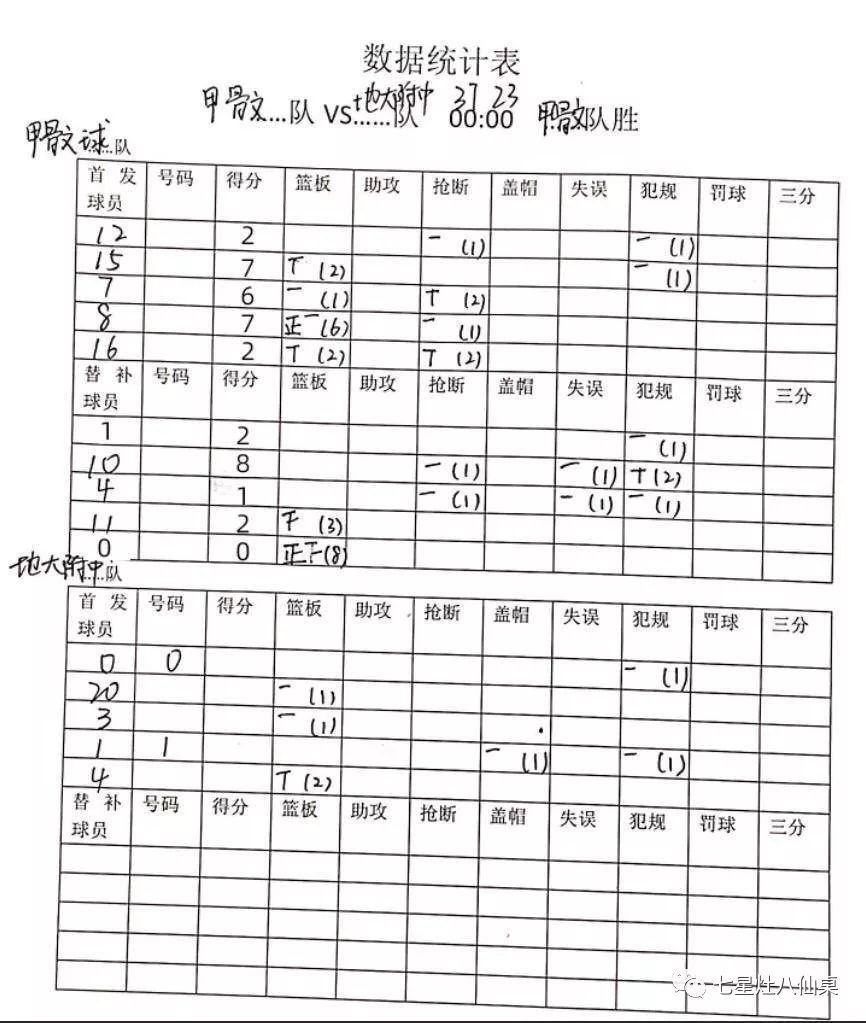 数据统计表
甲骨文...队 VS......队 地大附中 37 23 00:00 甲骨文队胜
甲骨文球...队
首发球员 号码 得分 篮板 助攻 抢断 盖帽 失误 犯规 罚球 三分
12 2 一 (1) 一 (1)
15 7 T (2) 一 (1)
7 6 一 (1) T (2)
8 7 正一(6) 一 (1)
16 2 T (2) T (2)
替补球员 号码 得分 篮板 助攻 抢断 盖帽 失误 犯规 罚球 三分
1 2 一 (1)
10 8 一 (1) 一 (1) T (2)
4 1 一 (1) 一 (1) 一 (1)
11 2 下 (3)
0 0 正下(8)
地大附中......队
首发球员 号码 得分 篮板 助攻 抢断 盖帽 失误 犯规 罚球 三分
0 0 一 (1)
20 一 (1)
3 一 (1)
1 1 一 (1) 一 (1)
4 T (2)
替补球员 号码 得分 篮板 助攻 抢断 盖帽 失误 犯规 罚球 三分
七星灶八仙桌